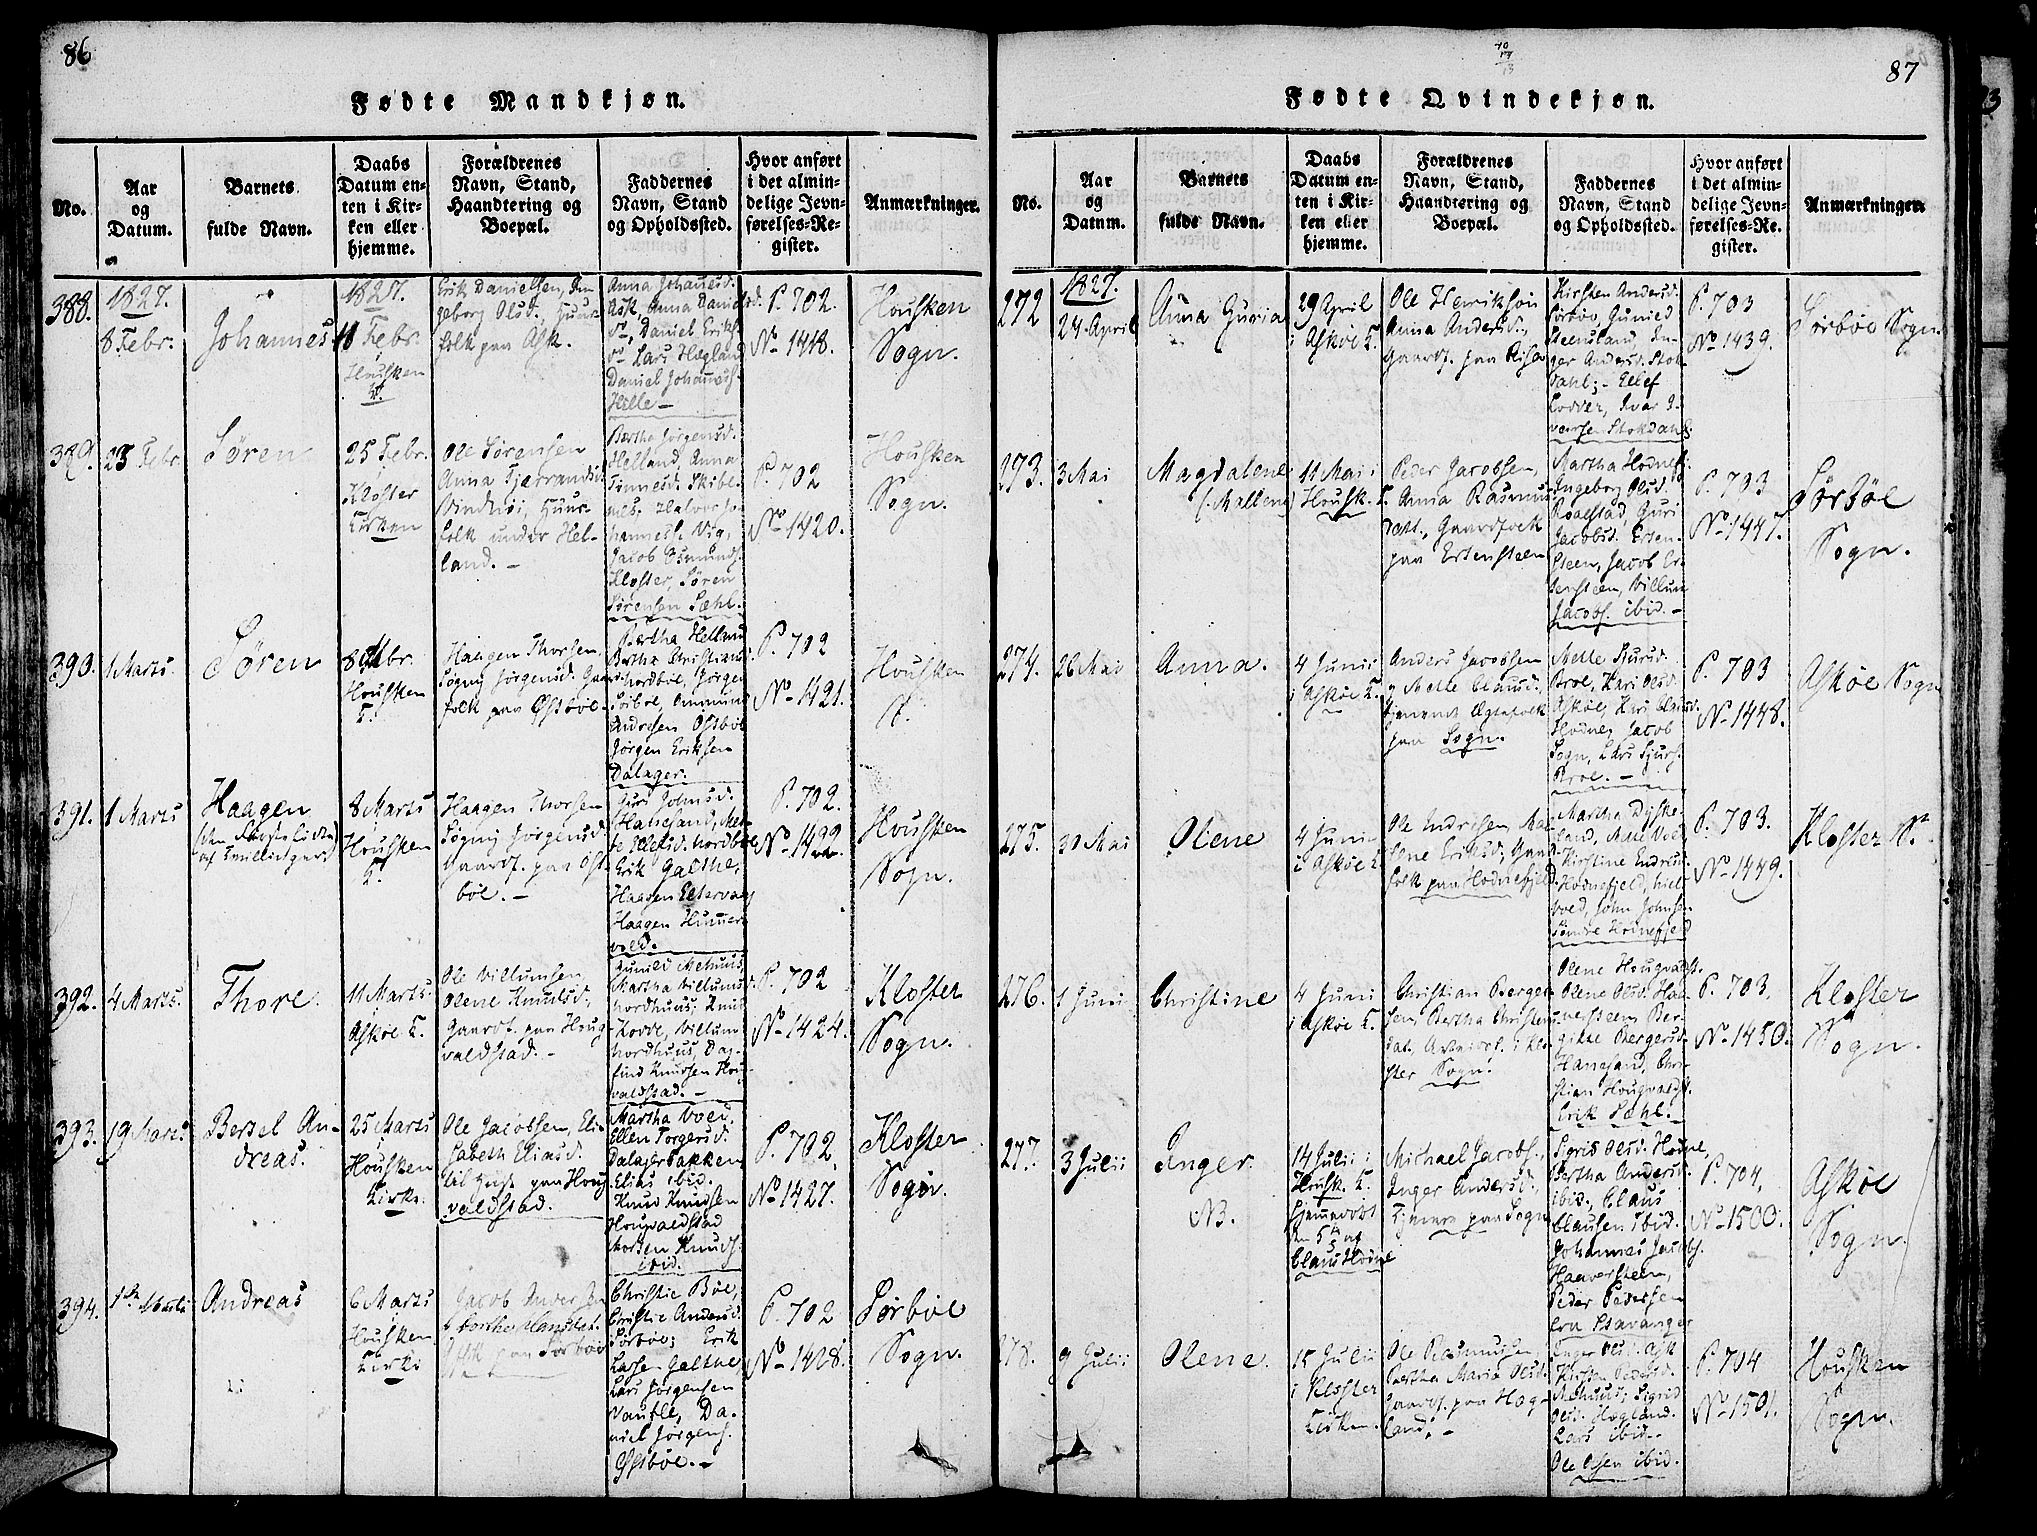 86
Fødte Mandkjøn.
No.
Aar
og
Datum.
Barnets
fulde Navn.
Daabs
Datum en-
ten i Kir-
ken eller
hjemme.
Forældrenes
Navn, Stand,
Haandtering og
Boepæl.
Faddernes
Navn, Stand
og Opholdssted.
Hvor anført
i det almin-
delige Jevn-
førelses-Re-
gister.
Anmærkninger.
388.
1827.
8 Febr.
Johannes
1827.
11 Febr.
Housken
K.
Erik Danielsen, In-
geborg Olsd.,
folk paa Ask.
Anna Johanesd.
Ask, Anna Danielsd.
Daniel Eriks.
Lars Hægland
Daniel Johannes.
Hille –
P. 702.
No 1418.
Housken
Sogn.
389.
23 Febr.
Søren
25 Febr.
Kloster
Kirken
Ole Sørensen
Anna
Huus-
folk under Hel-
land. –
Bertha Jørgensd.
Helland, Anna
Jacob Osmunds.
Kloster, Søren
Sørensen Sæhl.
P. 702
No 1420.
Housken
Sogn.
390.
1 Marts.
Søren
Housken
K.
Haagen Thorsen,
Søgny Jørgensd.
folk paa Østbøe.
Bertha Helland
Bertha Christiansd.
Nordbøe, Jørgen
Sørbøe,
Andersen Østbøe
Jørgen Eriksen
Dalager.
P. 702
No 1421.
Housken
S.
391.
1 Marts
Haagen
8 Marts
Housken
K.
Haagen Thorsen
Søgny Jørgensd.
Gaardf. paa Øst-
bøe. –
Guri Johnsd.
Hanesand,
Nordbøe
Erik Galthe,
Haagen
Haagen Hummer-
vold.
P. 702.
No 1422.
Housken
Sogn.
392.
4 Marts.
Thore.
11 Marts
Askøe K.
Ole Villumsen,
Olene Knudsd.,
Gaardf. paa Houg-
valdstad. –
Gunild Mehuus,
Martha Villumsd.
Nordhuus, Knud
Villum
Nordhuus, Dag-
find Knudsen Hou-
valdstad. –
P. 702
No 1424.
Kloster
Sogn.
393.
19 Marts
Bertel An-
dreas.
25 Marts
Housken
Kirke.
Ole Jacobsen, Eli-
sabeth Eliasd.
til Huse paa Houg-
valdstad.
Martha Voll,
Ellen Torgersd.
Dalagerbakken,
Elias ibid.
Knud Knudsen
Houvaldstad
Morten Knuds.
ibid.
P. 702,
No 1427.
Kloster
Sogn.
394.
Andreas
6 Marts
Housken
Kirke
Jacob Iversen
paa Sørbøe
Christie Bøe,
Christie Andersd.
Sørbøe; Erik
Larsen Galthe,
Lars Jørgensen
Da-
niel Jørgens.
Østbøe. –
P. 702
No 1428.
Sørbøe
Sogn.
87
Fødte Qvindekjøn.
No.
Aar
og
Datum.
Barnets
fulde Navn.
Daabs
Datum en-
ten i Kir-
ken eller
hjemme.
Forældrenes
Navn, Stand,
Haandtering og
Boepæl.
Faddernes
Navn, Stand
og Opholdssted.
Hvor anført
i det almin-
delige Jevn-
førelses-Re-
gister.
Anmærkninger.
272
1827.
24 April
Anna Guria
29 April
i Askøe K.
Ole Henriksen
Anna Andersd.,
Gaardf. paa Risa
Kirsten Andersd.
Sørbøe, Gunild
Steensland, In-
ger Andersd. Stok-
dahl; – Ellef
Ivar I-
versen Stokdahl,
P. 703
No 1439.
Sørbøe Sogn.
273.
3 Mai
Magdalene
(Mallene)
11 Mai i
Housk. K.
Peder Jacobsen,
Anna Rasmus-
dat., Gaardfolk
paa Ertensteen
Martha Hodnefj.
Ingeborg Olsd.
Roalstad, Guri
Jacobsd. Erten-
steen, Jacob Er-
tensteen, Villum
Jacobs. ibid. –
P. 703
No 1447.
Sørbøe
Sogn.
274.
26 Mai
Anna.
4 Junii
i Askøe K.
Anders Jacobsen
og Malle Clausd.,
tjenende Ægtefolk
paa Sogn.
Malle Sjursd.
Broe, Kari Olsd.
Askøe, Kari Clausd.
Hodne, Jacob
Sogn, Lars Sjurs.
Broe. –
P. 703
No 1448.
Askøe Sogn
275.
30 Mai
Olene
4 Juni
i Askøe K.
Ole Endresen, Ma-
lene Eriksd., Gaard-
folk paa Hodnefjeld.
Martha Dyske-
land,
Kirstine Endresd.
Hodnefjeld,
Voll, John Johnsen
Søndre Hodnefjeld
P. 703.
No 1449.
Kloster S.
276.
1 Juni
Christine
4 Juni
i Askøe K.
Christian Berger-
sen, Bertha Christens-
dat. i Klo-
ster Sogn.
Olene Hougvaldst.
Olene Olsd. Haa-
versteen, Ber-
gitte Bergersd.
Hanesand, Chri-
stian Hougvaldst.
Erik Sæhl.
P. 703,
No 1450.
Kloster
Sogn.
277.
3 Julii
Inger.
NB.
14 Julii i
Housk. K.
Hjemmedøbt
den 5te af
Claus Hodne
Michael Jacobs.,
Inger Andersd.,
Tjenere paa Sogn
Sigrid Olsd. Hodne,
Bertha Andersd.
ibid., Claus
Clausen ibid.
Johannes Jacobs.
Haaversteen,
Peder Pedersen
fra Stavanger
P. 704,
No 1500.
Askøe
Sogn.
278.
9 Julii
Olene.
15 Julii
i Kloster
Kirken.
Ole Rasmussen,
Bertha Maria Olsd.
Gaardf. paa Hæg-
land. –
Inger Olsd. Ask
Kirsten Pedersd.
Mehuus; Sigrid
Olsd. Hægland.
Lars ibid.
Ole Olsen ibid.
P. 704
No 1501.
Housken
Sogn.